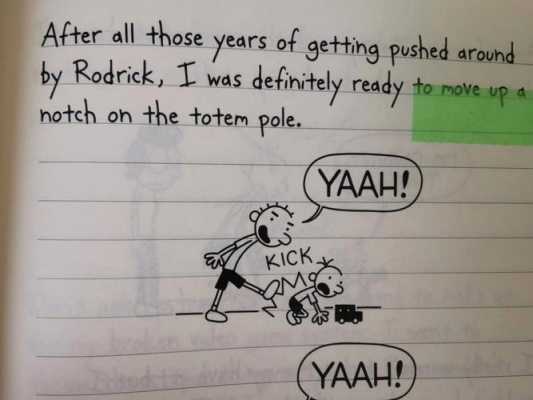 After all those years of getting pushed around
by Rodrick, I was definitely ready to move up a
notch on the totem pole.
YAAH!
KICK
YAAH!